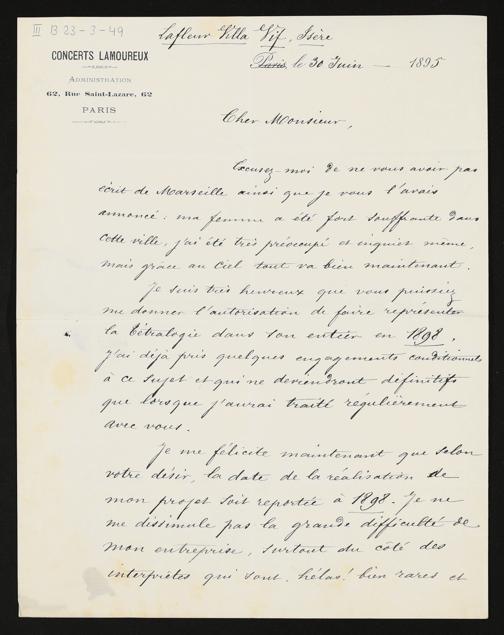 III B 23-3-49
Lafleur Villa Vif, Isère
CONCERTS LAMOUREUX
Paris, le 30 Juin — 1895
ADMINISTRATION
62, Rue Saint-Lazare, 62
PARIS
Cher Monsieur,
Excusez-moi de ne vous avoir pas
écrit de Marseille ainsi que je vous l'avais
annoncé: ma femme a été fort souffrante dans
cette ville, j'ai été très préoccupé et inquiet même,
mais grâce au Ciel tout va bien maintenant.
Je suis très heureux que vous puissiez
me donner l'autorisation de faire représenter
la Tétralogie dans son entier en 1898,
j'ai déjà pris quelques engagements conditionnels
à ce sujet et qui ne deviendront définitifs
que lorsque j'aurai traité régulièrement
avec vous.
Je me félicite maintenant que selon
votre désir, la date de la réalisation de
mon projet soit reportée à 1898. Je ne
me dissimule pas la grande difficulté de
mon entreprise, surtout du côté des
interprètes qui sont, hélas! bien rares et